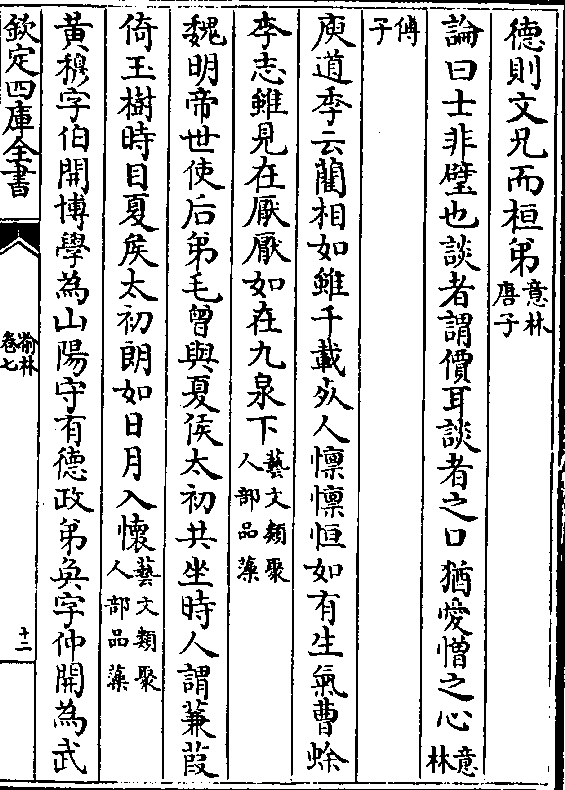 德則文兄而桓弟意林唐子
論曰士非璧也談者謂價耳談者之口猶愛憎之心意林
傅子
庾道季云藺相如雖千載死人懍懍恒如有生氣曹蜍
李志雖見在厭厭如在九泉下藝文類聚人部品藻
魏明帝世使后弟毛曾與夏侯太初共坐時人謂蒹葭
倚玉樹時目夏侯太初朗如日月入懷藝文類聚人部品藻
黃穆字伯開博學為山陽守有德政弟奐字仲開為武
欽定四庫全書
喻林
卷七
十二